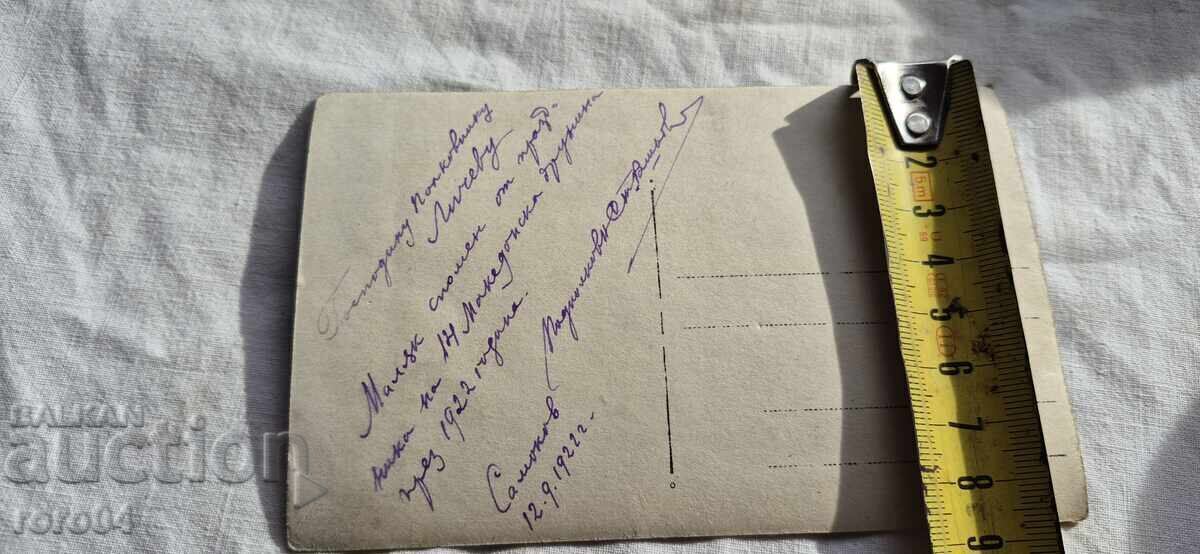 Господину Полковнику
Личеву
Малък спомен от празд-
ника на 14 Македонска дружина
през 1922 година.
Подполковн.
Самоков
12.9.1922 г.-
2
3
4
5
6
7
8
9
BALKAN
auction
roro04